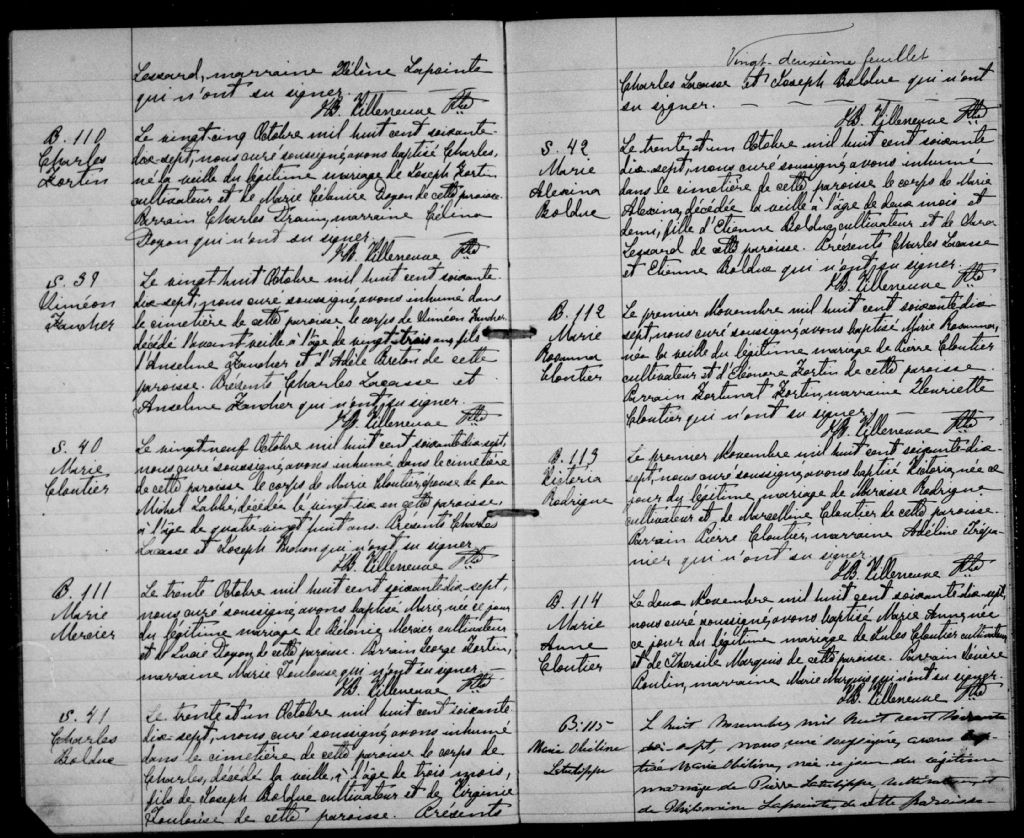 Lessard, marraine Délène Lapointe
qui n'ont su signer.
J.B. Villeneuve Ptre
B. 110
Charles
Fortin
Le vingt-cinq Octobre mil huit cent soixante-
dix-sept, nous curé soussigné, avons baptisé Charles,
né la veille du légitime mariage de Joseph Fortin
cultivateur et de Marie Célanire Doyon de cette paroisse
Parrain Charles Drouin, marraine Célina
Doyon qui n'ont su signer.
J.B. Villeneuve Ptre
S. 39
Siméon
Faucher
Le vingt huit Octobre mil huit cent soixante-
dix-sept, nous curé soussigné, avons inhumé dans
le cimetière de cette paroisse le corps de Siméon Faucher
décédé l'avant veille à l'âge de vingt-trois ans, fils
d'Anselme Faucher et d'Adèle Breton de cette
paroisse. Présents Charles Lacasse et
Anselme Faucher qui n'ont su signer.
J.B. Villeneuve Ptre
S. 40
Marie
Cloutier
Le vingt-neuf Octobre mil huit cent soixante-dix-sept,
nous curé soussigné, avons inhumé dans le cimetière
de cette paroisse le corps de Marie Cloutier, épouse de feu
Michel Labbé, décédée le vingt-six en cette paroisse
à l'âge de quatre-vingt huit ans. Présents Charles
Lacasse et Joseph qui n'ont su signer
J.B. Villeneuve Ptre
B. 111
Marie
Mercier
Le trente Octobre mil huit cent soixante-dix-sept,
nous curé soussigné, avons baptisé Marie, née ce jour
du légitime mariage de Bélonie Mercier cultivateur
et de Lucie Doyon de cette paroisse. Parrain George Fortin,
marraine Marie Toulouse qui n'ont su signer
J.B. Villeneuve Ptre
S. 41
Charles
Bolduc
Le trente et un Octobre mil huit cent soixante
dix-sept, nous curé soussigné, avons inhumé
dans le cimetière de cette paroisse le corps de
Charles, décédé la veille, à l'âge de trois mois,
fils de Joseph Bolduc cultivateur et de Virginie
Toulouse de cette paroisse. Présents
Vingt-deuxième feuillet
Charles Lacasse et Joseph Bolduc qui n'ont
su signer.
J.B. Villeneuve Ptre
S. 42
Marie
Alexina
Bolduc
Le trente et un Octobre mil huit cent soixante
dix-sept, nous curé soussigné, avons inhumé
dans le cimetière de cette paroisse le corps de Marie
Alexina, décédée la veille à l'âge de deux mois et
demi, fille d'Etienne Bolduc, cultivateur et de
Lessard de cette paroisse. Présents Charles Lacasse
et Etienne Bolduc qui n'ont su signer.
J.B. Villeneuve Ptre
B. 112
Marie
Rosanna
Cloutier
Le premier Novembre mil huit cent soixante dix-
sept, nous curé soussigné, avons baptisé Marie Rosanna,
née la veille du légitime mariage de Pierre Cloutier
cultivateur et d'Eléonore Fortin de cette paroisse.
Parrain Fortunat Fortin, marraine Henriette
Cloutier qui n'ont su signer
J.B. Villeneuve Ptre
B. 113
Victoria
Rodrigue
Le premier Novembre mil huit cent soixante-dix-
sept, nous curé soussigné, avons baptisé Victoria, née ce
jour du légitime mariage de Rodrigue
cultivateur et de Marcelline Cloutier de cette paroisse.
Parrain Pierre Cloutier, marraine Adéline Trépa-
nier qui n'ont su signer
J.B. Villeneuve Ptre
B. 114
Marie
Anne
Cloutier
Le deux Novembre mil huit cent soixante-dix-sept,
nous curé soussigné, avons baptisé Marie Anne, née
ce jour du légitime mariage de Jules Cloutier cultivateur
et de Thersile Marquis de cette paroisse. Parrain Sévère
Poulin, marraine Marie Marquis qui n'ont su signer
J.B. Villeneuve Ptre
B. 115
Marie Obéline
Letulippe
L huit November mil huit cent soixante
dix-sept, nous curé soussigné, avons bap-
tisé Marie Obéline, née ce jour du légitime
mariage de Pierre Letulippe, cultivateur, et
de Philomène Lapointe, de cette paroisse